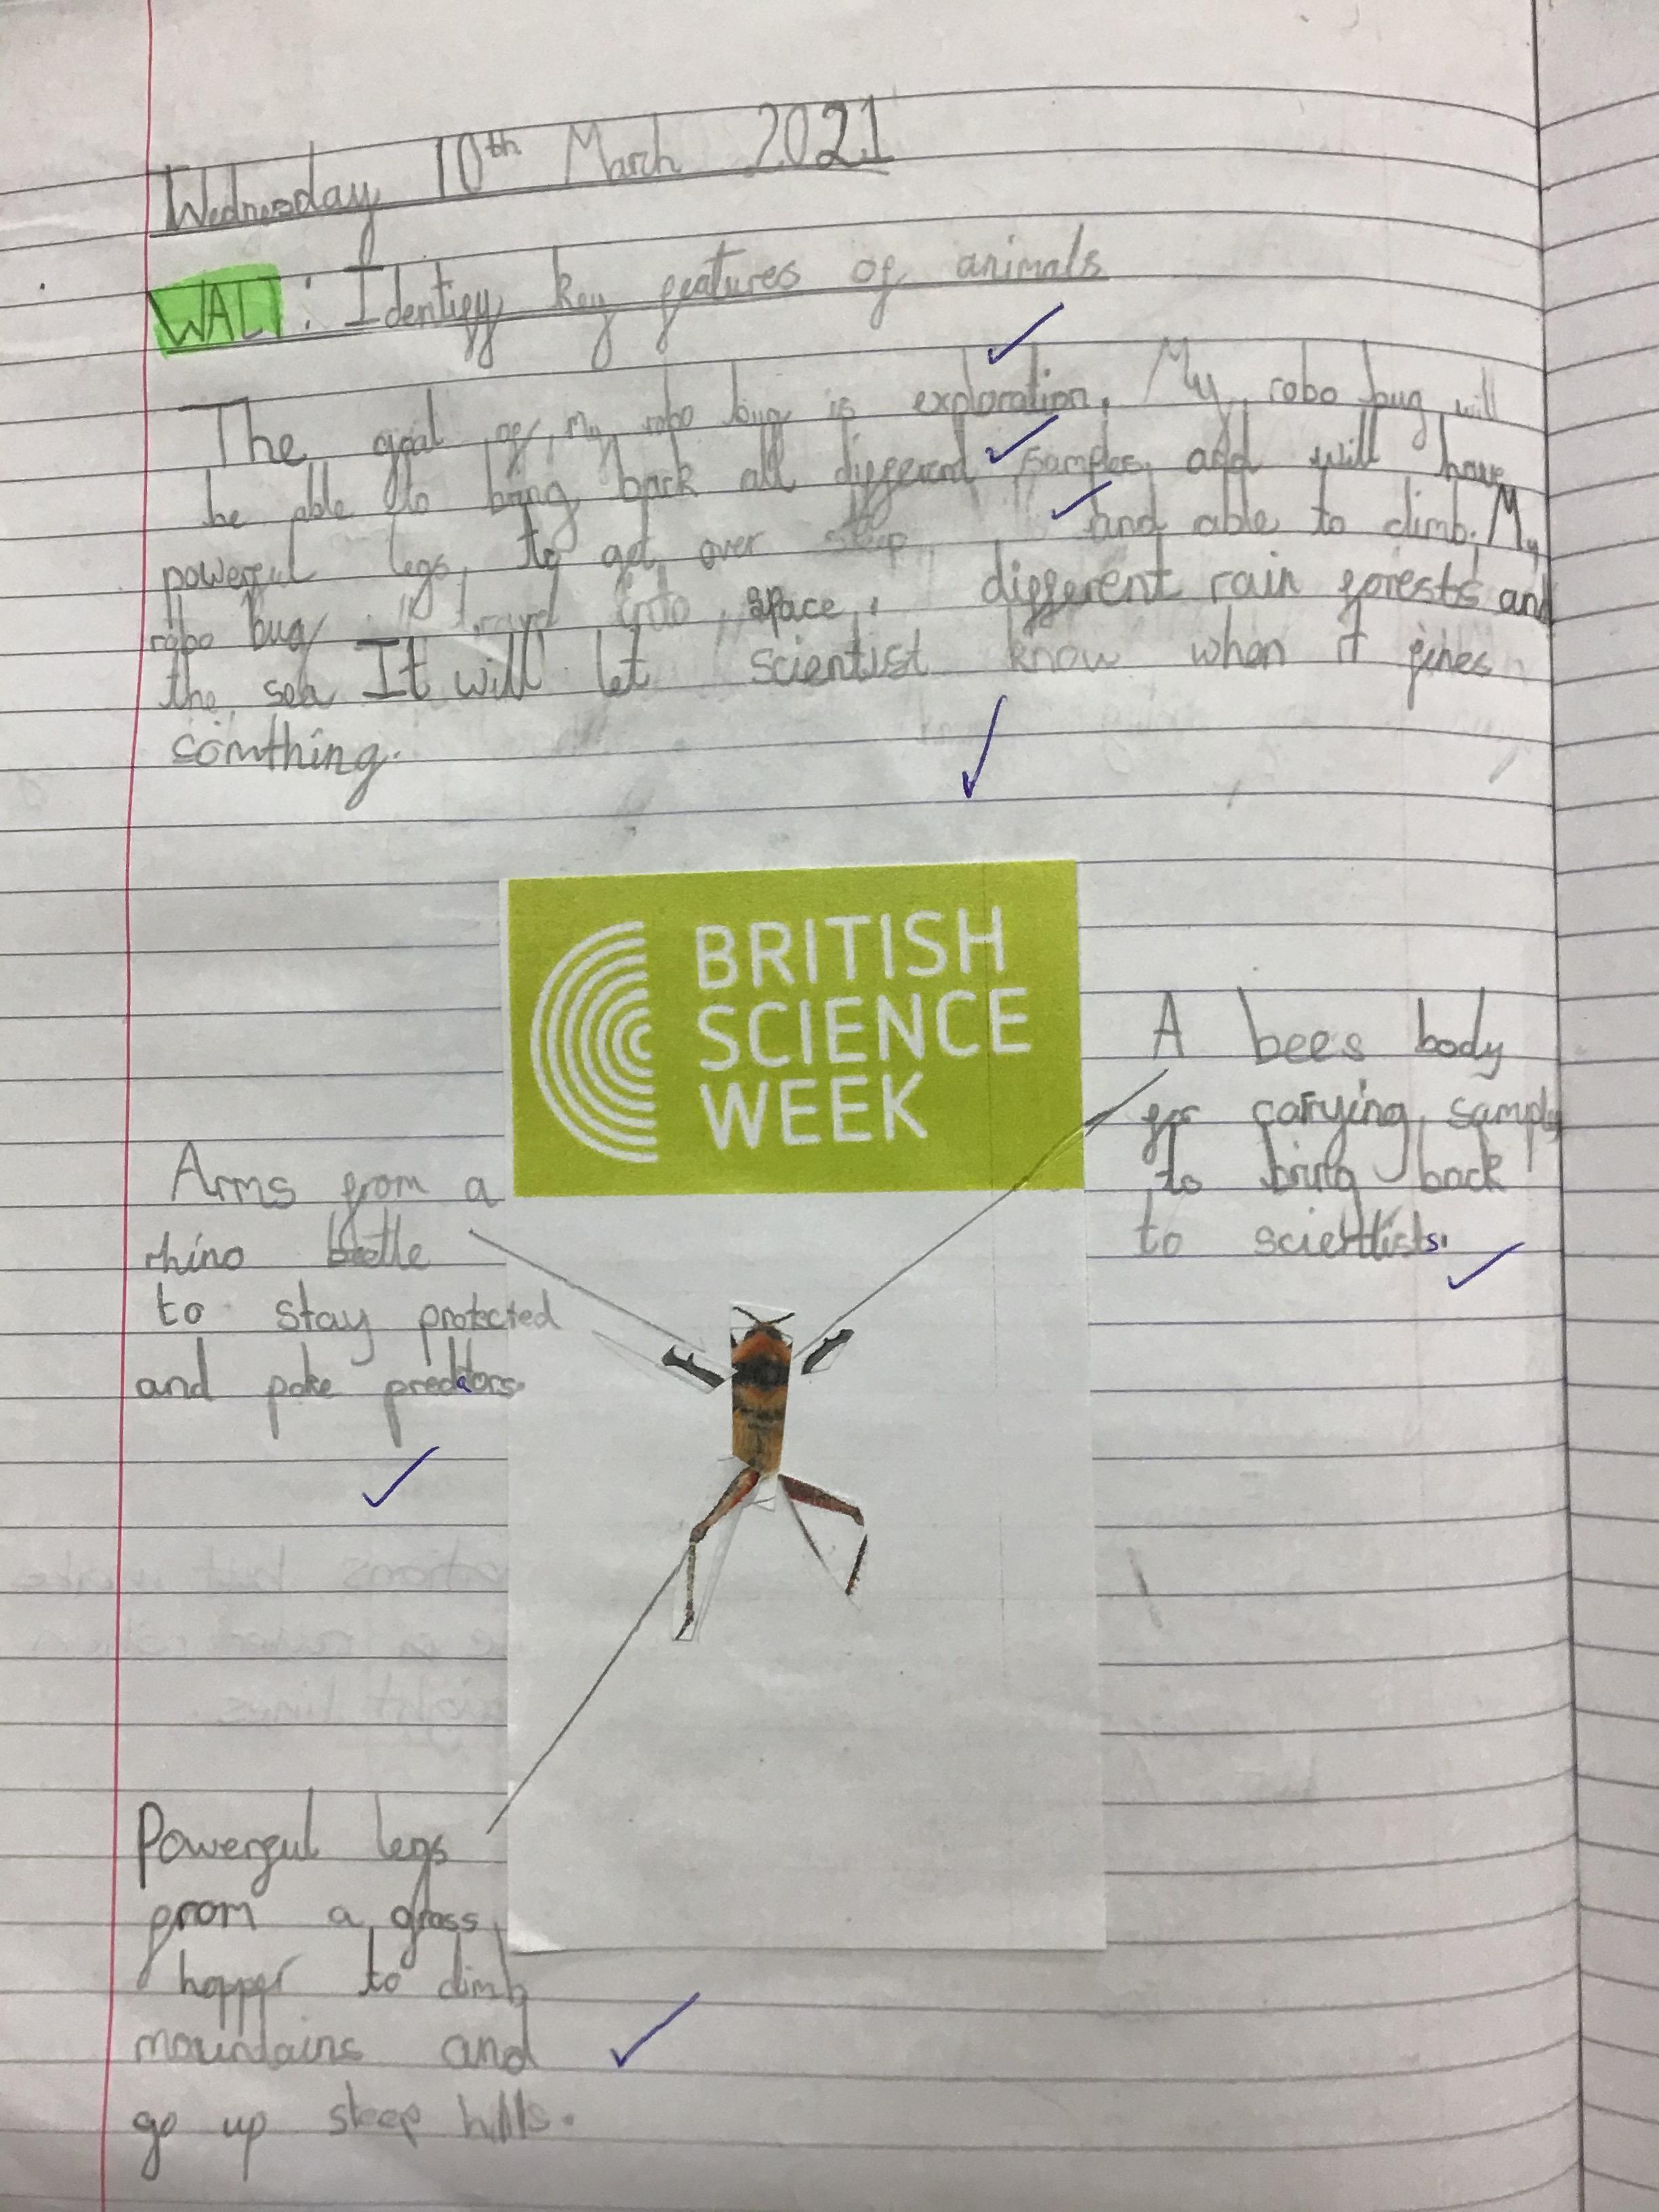 Wednesday 10th March 2021
WALT: Identify key features of animals
The goal of my robo bug is exploration. My robo bug will
be able to bring back all different samples and will have
powerful legs, to get over steep and able to climb. My
robo bug travel into space, different rain forests and
the sea It will let scientist know when it fines
somthing.
BRITISH
SCIENCE
WEEK
A bees body
for carrying samples
to bring back
to scientists.
Arms from a
rhino beetle
to stay protected
and poke predators.
Powerful legs
from a grass
hopper to climb
mountains and
go up steep hills.